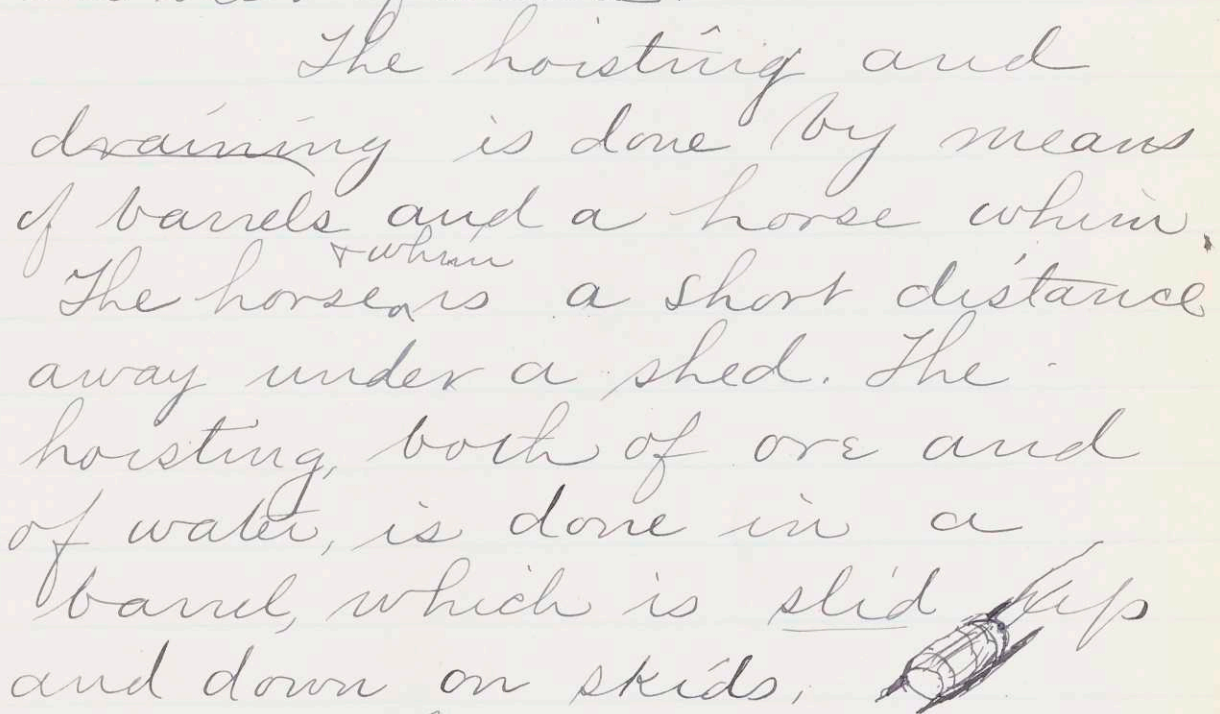 The hoisting and
draining is done by means
of barrels and a horse whim.
& whim
The horse is a short distance
away under a shed. The
hoisting, both of ore and
of water, is done in a
barrel, which is slid up
and down on skids.